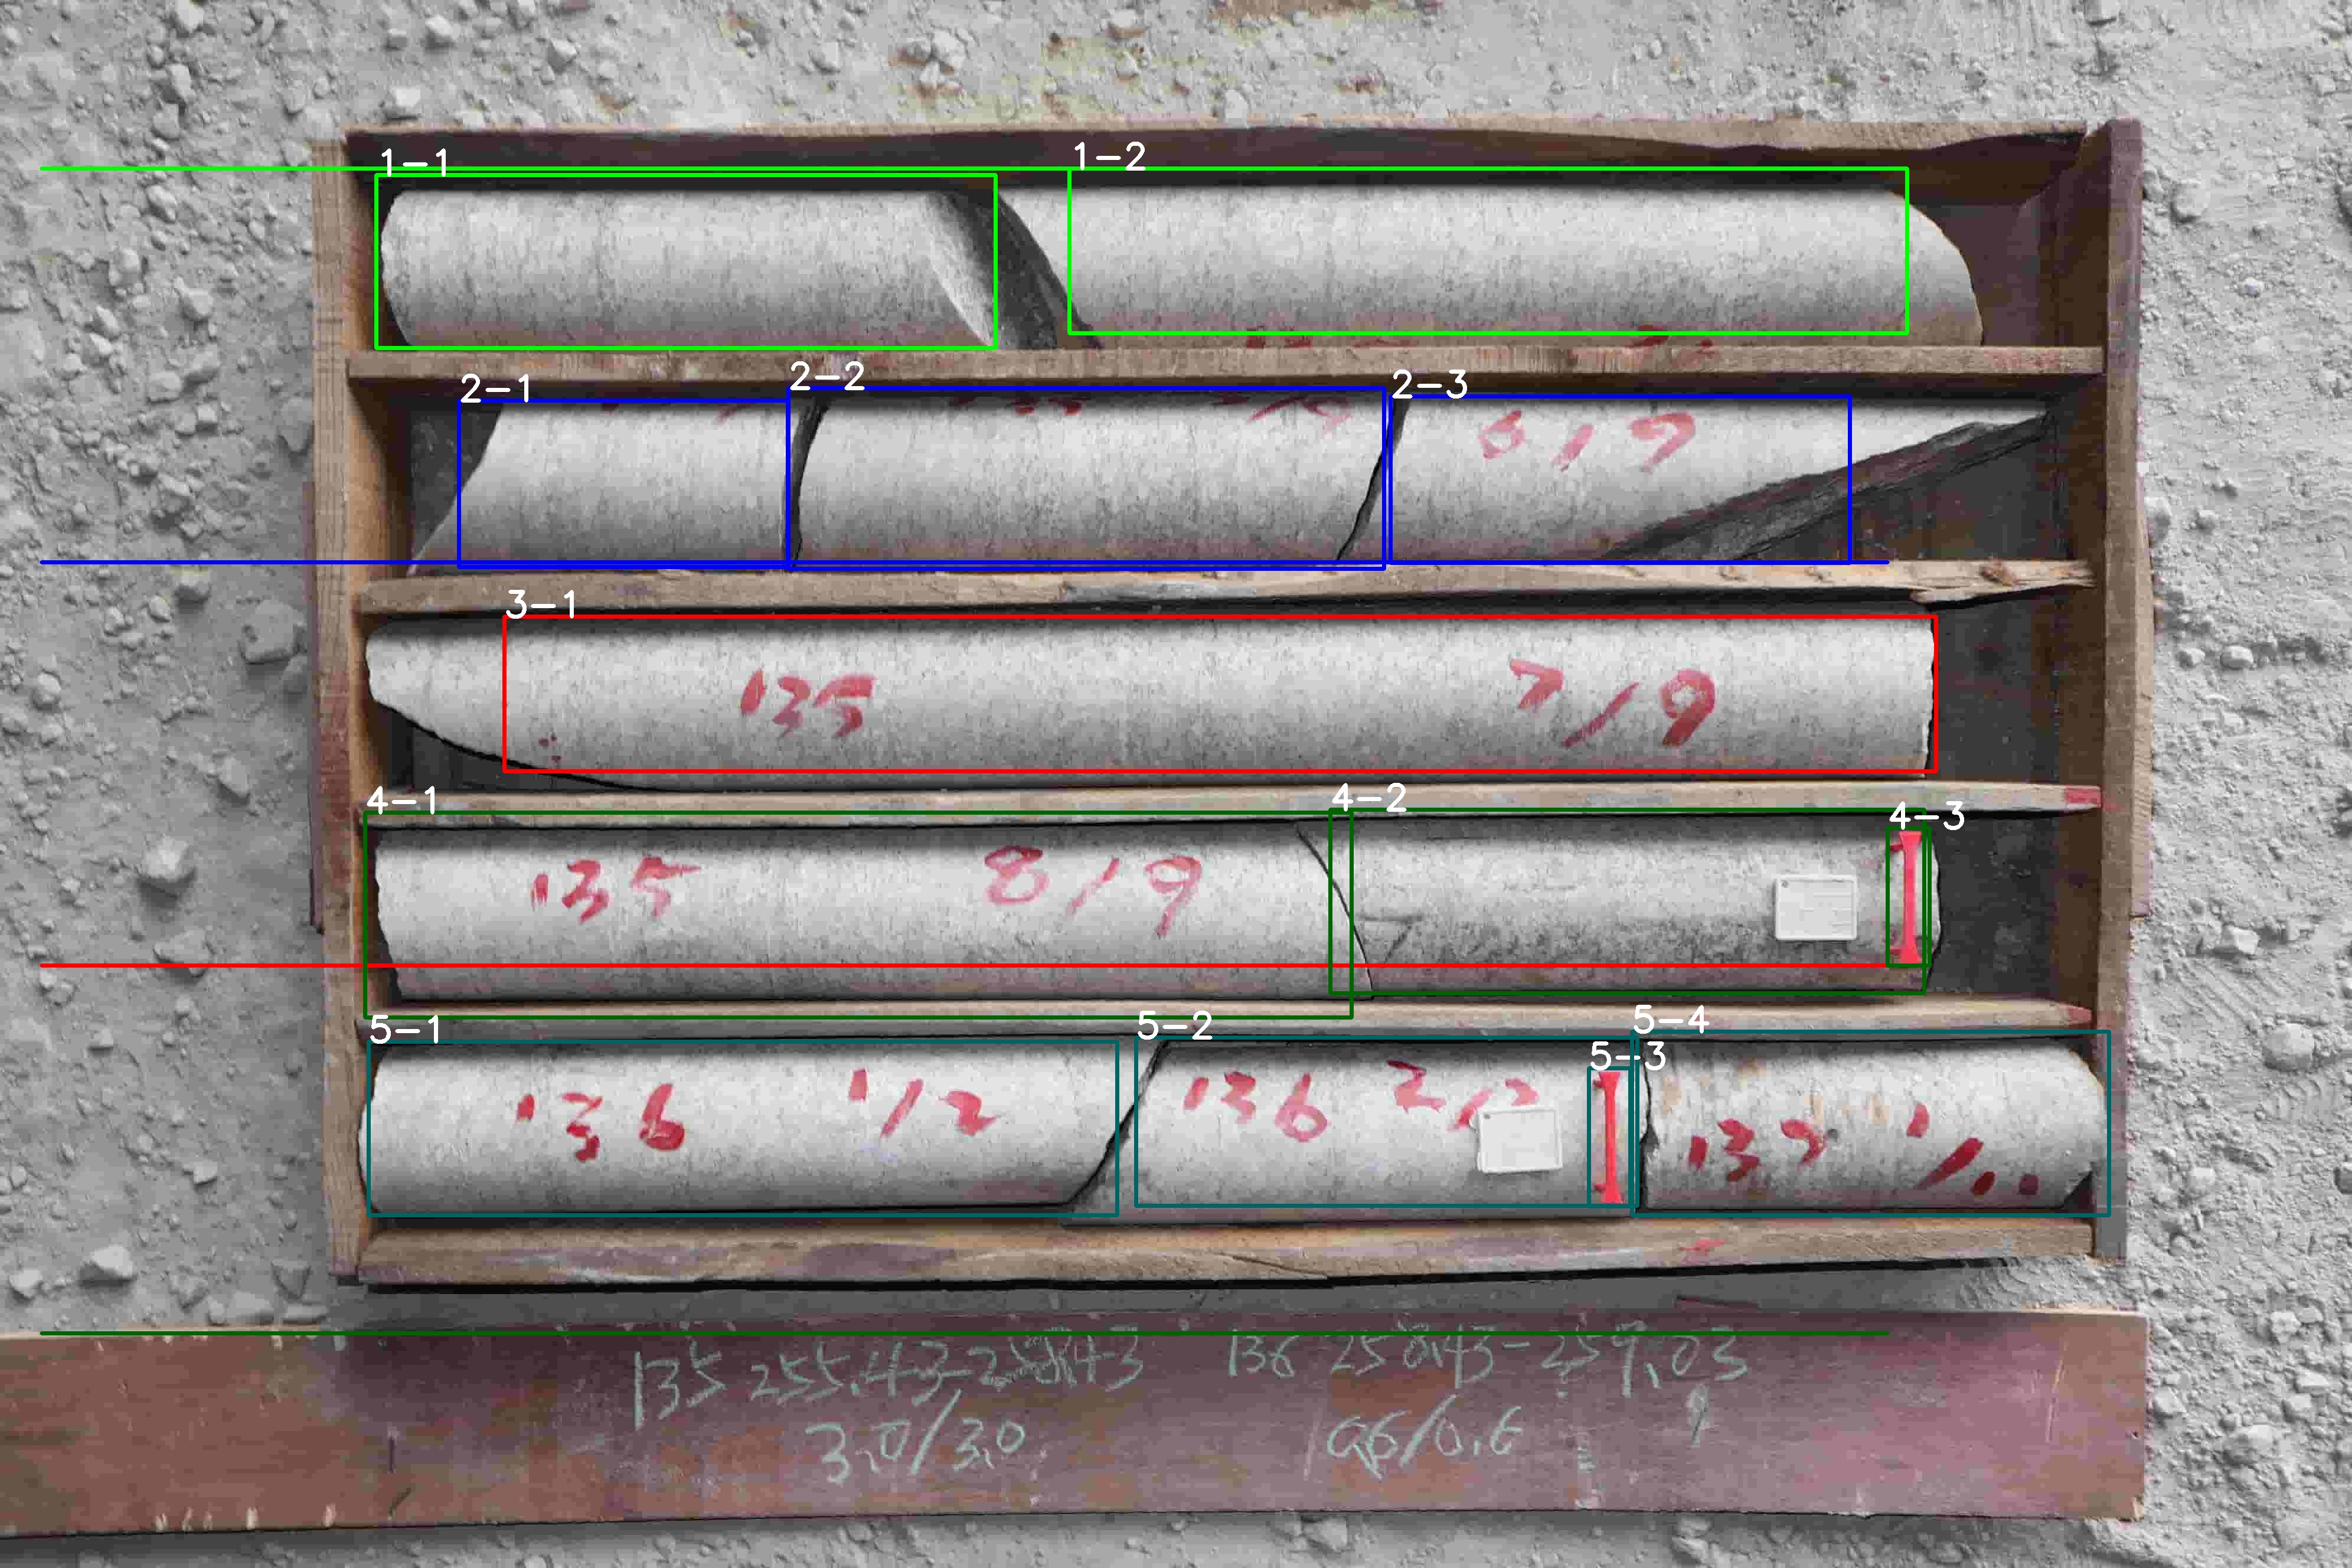 1-1
1-2
2-1
2-2
2-3
8/9
3-1
135
7/9
4-1
4-2
4-3
135
8/9
5-1
5-2
5-3
5-4
136
1/2
136
2/2
137
135 255.43-258.43
136 258.43-259.03
3.0/3.0
0.6/0.6